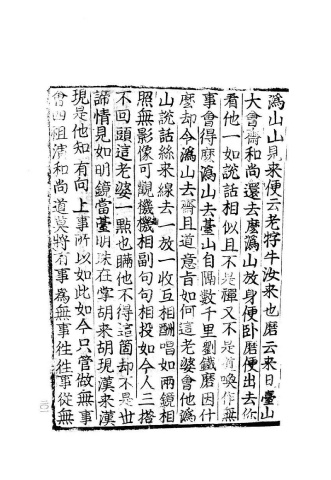 溈山山見來便云老牸牛汝來也磨云來日臺山
大會齋和尚還去麼溈山放身便臥磨便出去你
看他一如說話相似且不是禪又不是道喚作無
事會得麼溈山去臺山自隔數千里劉鐵磨因什
麼却令溈山去齋且道意旨如何這老婆會他溈
山說話絲來線去一放一收互相酬唱如兩鏡相
照無影像可觀機機相副句句相投如今人三搭
不回頭這老婆一點也瞞他不得這箇却不是世
諦情見如明鏡當臺明珠在掌胡來胡現漢來漢
現是他知有向上事所以如此如今只管做無事
會四祖演和尚道莫將有事為無事往往事從無